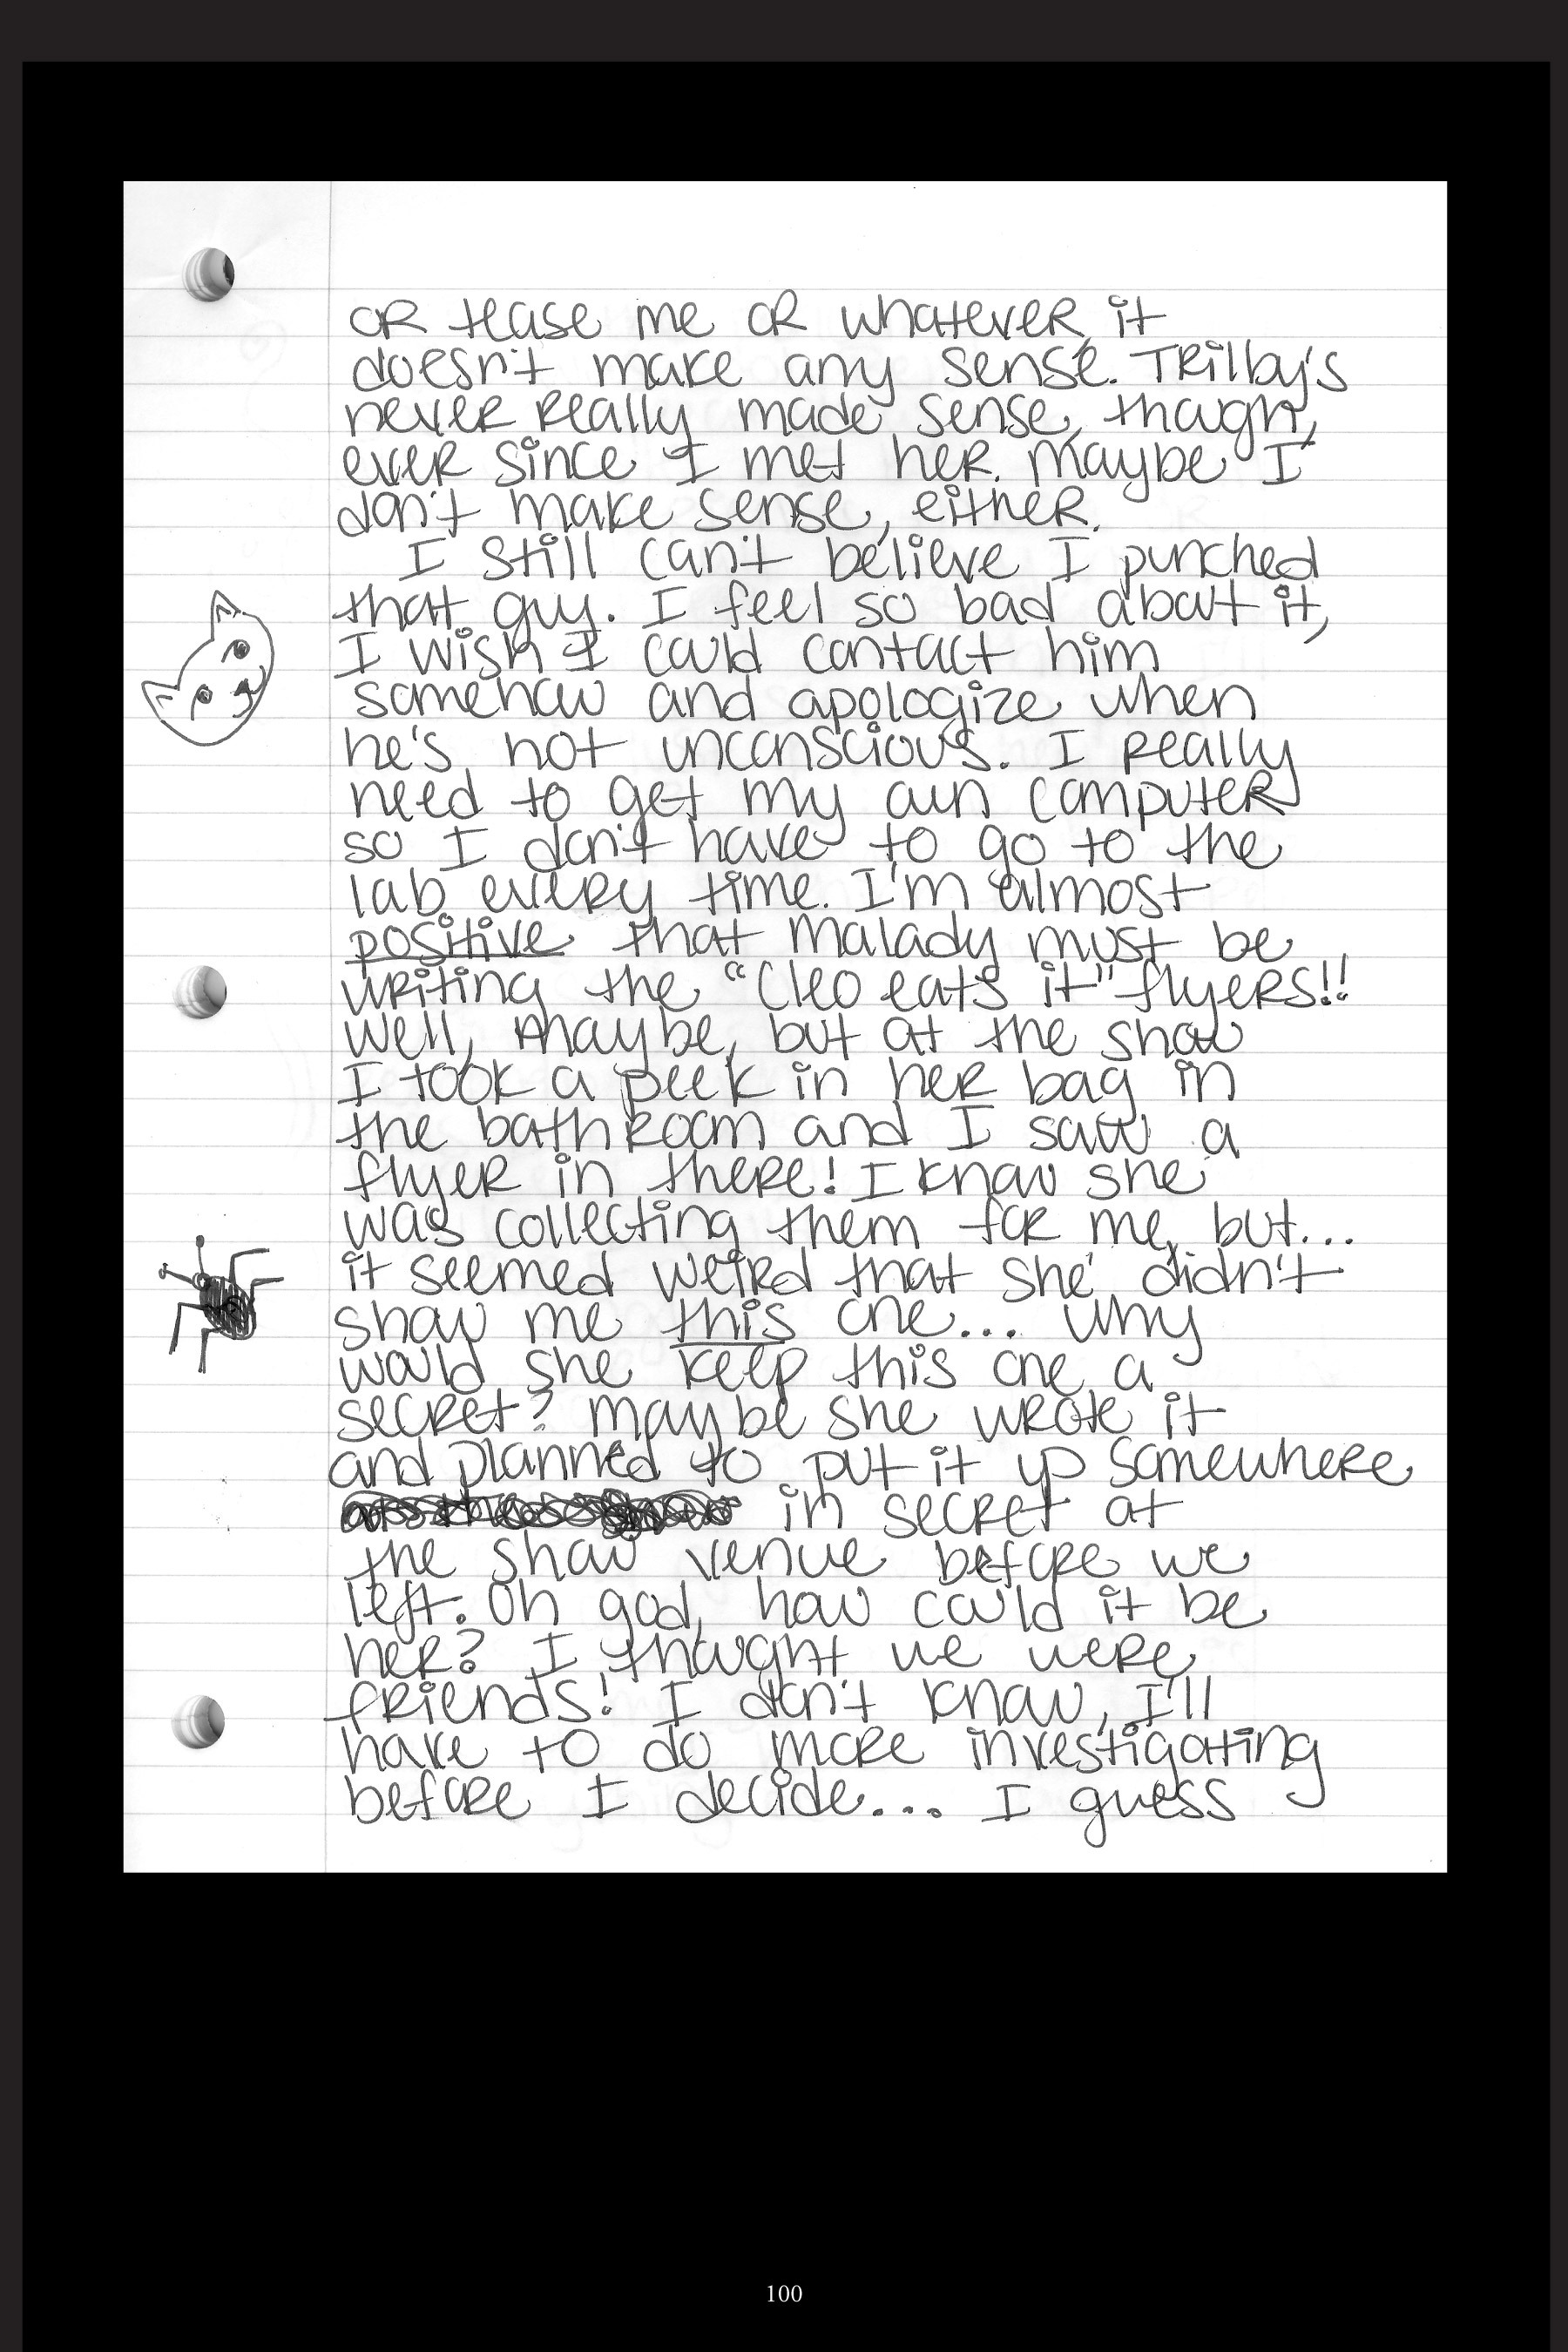 or tease me or whatever, it
doesn't make any sense. Trilby's
never really made sense, though,
ever since I met her. Maybe I
don't make sense, either.
I still can't believe I punched
that guy. I feel so bad about it,
I wish I could contact him
somehow and apologize when
he's not unconscious. I really
need to get my own computer
so I don't have to go to the
lab every time. I'm almost
positive that Malady must be
writing the "Cleo eats it" flyers!!
Well, maybe, but at the show
I took a peek in her bag in
the bathroom and I saw a
flyer in there! I know she
was collecting them for me, but...
it seemed weird that she didn't
show me this one... why
would she keep this one a
secret? Maybe she wrote it
and planned to put it up somewhere
in secret at
the show venue before we
left. Oh god, how could it be
her? I thought we were
friends! I don't know, I'll
have to do more investigating
before I decide... I guess
100